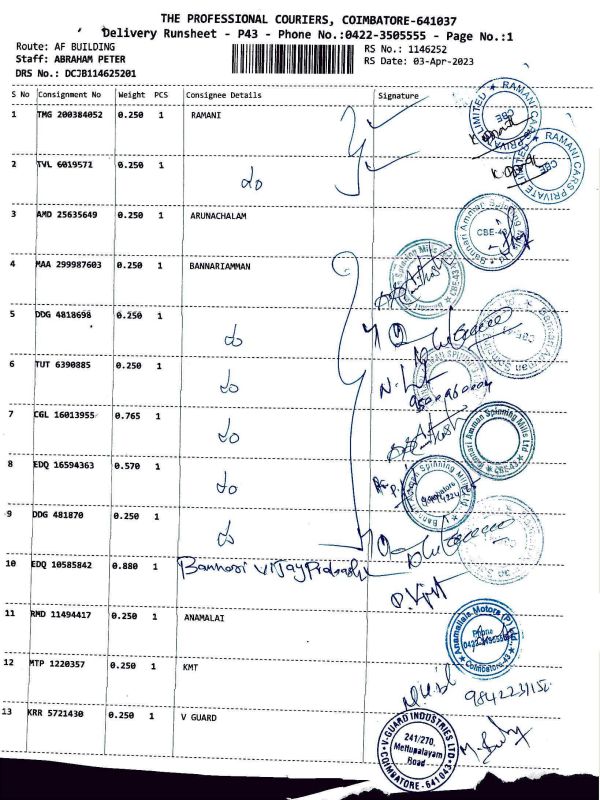 THE PROFESSIONAL COURIERS, COIMBATORE-641037
Delivery Runsheet - P43 - Phone No.:0422-3505555 - Page No.:1
Route: AF BUILDING
Staff: ABRAHAM PETER
DRS No.: DCJB114625201
RS No.: 1146252
RS Date: 03-Apr-2023
S No Consignment No Weight PCS Consignee Details Signature
1 TMG 200384052 0.250 1 RAMANI
RAMANI CARS PRIVATE LIMITED CBE
2 TVL 6019572 0.250 1 do
RAMANI CARS PRIVATE LIMITED CBE
3 AMD 25635649 0.250 1 ARUNACHALAM
4 MAA 299987603 0.250 1 BANNARIAMMAN
5 DDG 4818698 0.250 1 do
6 TUT 6390885 0.250 1 do
7 CGL 16013955 0.765 1 do
Bannari Amman Spinning Mills Ltd
8 EDQ 16594363 0.570 1 do
9 DDG 481870 0.250 1 do
10 EDQ 10585842 0.880 1 Bannari Vijay Prakash
11 RMD 11494417 0.250 1 ANAMALAI
Anamallais Motors (P) Ltd Phone Coimbatore-43
12 MTP 1220357 0.250 1 KMT
13 KRR 5721430 0.250 1 V GUARD
V-GUARD INDUSTRIES LTD 241/270, Mettupalayam Road COIMBATORE - 641 043